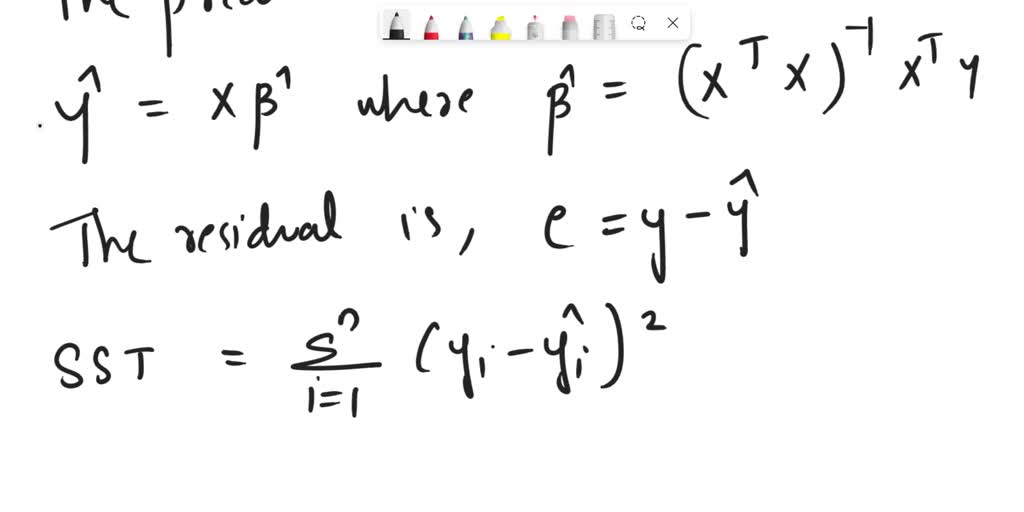 The
ŷ = xβ̂ where β̂ = (xᵀx)⁻¹ xᵀy
The residual is, e = y - ŷ
SST = Σⁿᵢ₌₁ (yᵢ - ŷᵢ)²